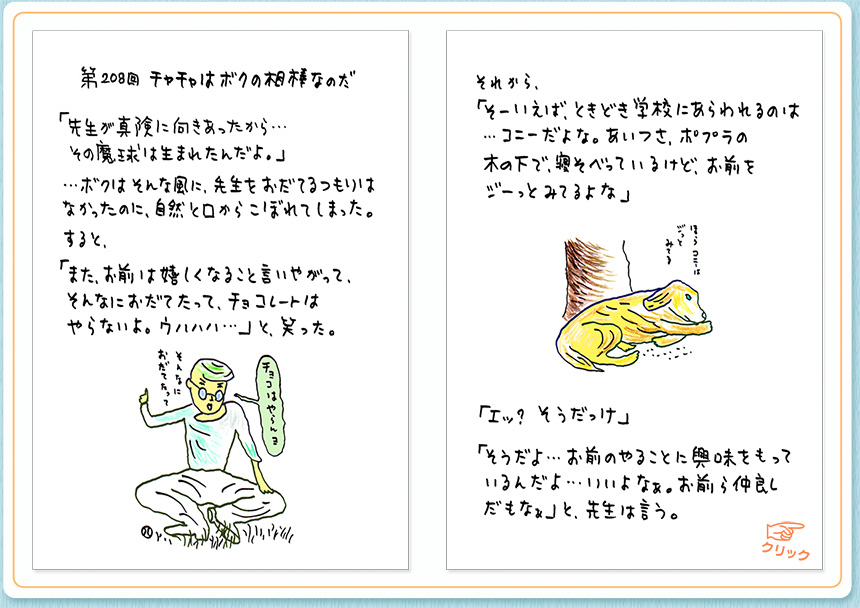 第208回 チャチャはボクの相棒なのだ
「先生が真険に向きあったから…
その魔球は生まれたんだよ。」
…ボクはそんな風に、先生をおだてるつもりは
なかったのに、自然と口からこぼれてしまった。
すると、
「また、お前は嬉しくなること言いやがって、
そんなにおだてたって、チョコレートは
やらないよ。ウハハハ…」と、笑った。
そんなに
おだてたって
チョコはやらんよ
それから、
「そーいえば、ときどき学校にあらわれるのは
…コニーだよな。あいつさ、ポプラの
木の下で、寝そべっているけど、お前を
ジーっとみてるよな」
ほらコニーは
ジっと
みてる
「エッ? そうだっけ」
「そうだよ…お前のやることに興味をもって
いるんだよ…いいよなぁ。お前ら仲良し
だもなぁ」と、先生は言う。
クリック